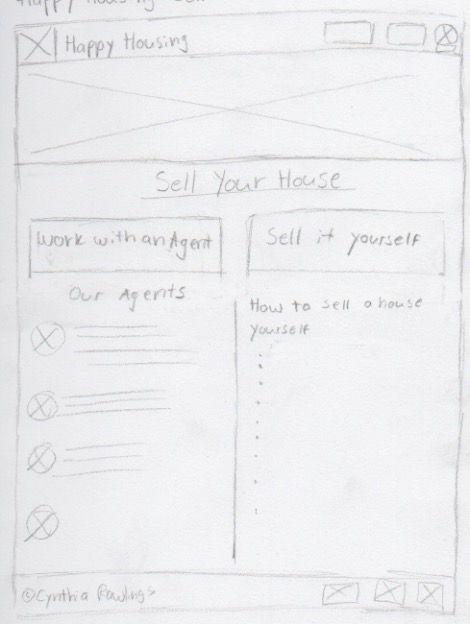 Happy Housing
Happy Housing
Sell Your House
Work with an Agent
Sell it yourself
Our Agents
How to sell a house
yourself
©Cynthia Rawlings